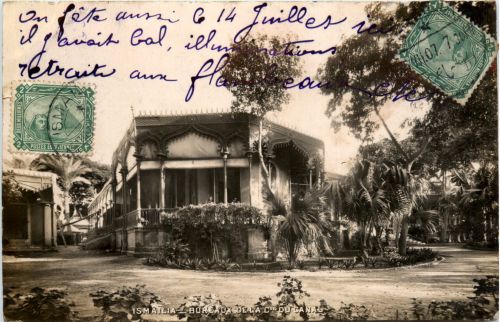 On fête aussi le 14 Juillet ici
il y avait bal, illuminations
retraite aux flambeaux etc
ISMAÏLIA - BUREAUX DE LA Cie DU CANAL